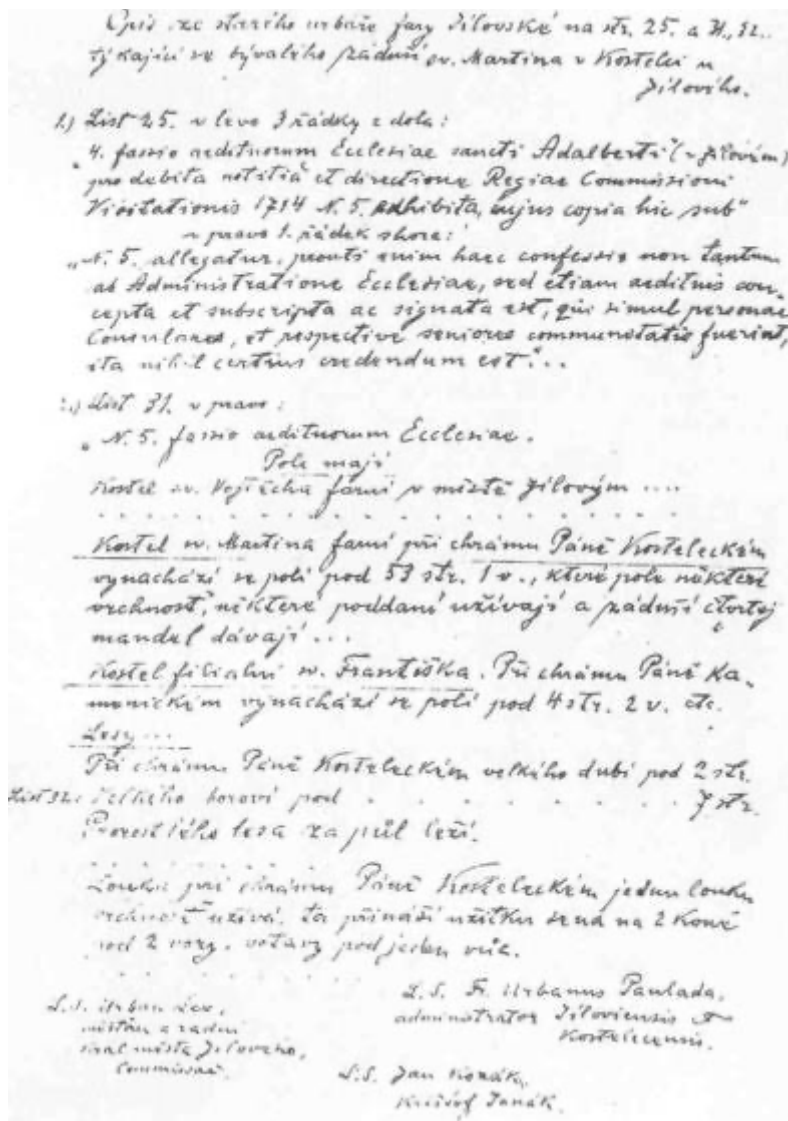 Opis ze starého urbáře fary Jílovské na str. 25. a 31., 32..
týkající se bývalého záduší sv. Martina v Kostelci u
Jílového.
1.) List 25. v levo 3 řádky z dola:
"4. fassio aedituorum Ecclesiae sancti Adalberti (v Jílovém)
pro debita notitiâ et directione Regiae Commissioni
Visitationis 1714 N. 5. adhibita, cujus copia hic sub"
v pravo 1. řádek shora:
"N. 5. allegatur, prouti enim haec confessio non tantum
ab Administratione Ecclesiae, sed etiam aedituis con-
cepta et subscripta ac signata est, qui simul personae
Consulares, et respective seniores communitatis fuerint,
ita nihil certius credendum est."..
2.) List 31. v pravo:
"N. 5. fassio aedituorum Ecclesiae.
Pole mají
Kostel sv. Vojtěcha farní v městě Jílovým ....
Kostel sv. Martina farní při chrámu Páně Kosteleckém
vynachází se polí pod 53 str. 1 v., které pole některé
vrchnost, některé poddaní užívají a záduší čtvrtej
mandel dávají ...
Kostel filiální sv. Františka. Při chrámu Páně Ka-
menickým vynachází se polí pod 4 str. 2 v. etc.
Lesy ...
Při chrámu Páně Kosteleckém velkého dubí pod 2 str.
List 32: boroví pod . . . . . . 7 str.
lesa za půl leží.
Louka při chrámu Páně Kosteleckém jednu louku
vrchnost užívá, ta přináší užitku sena na 2 koně
pod 2 vozy, votavy pod jeden vůz.
L.S. Urban
měšťan a radní
města Jílového,
Commissař.
L.S. Fr. Urbanus Paulada,
administrator Jiloviensis et
Kostelecensis.
L.S. Jan Kozák,
Kryštof Janák.